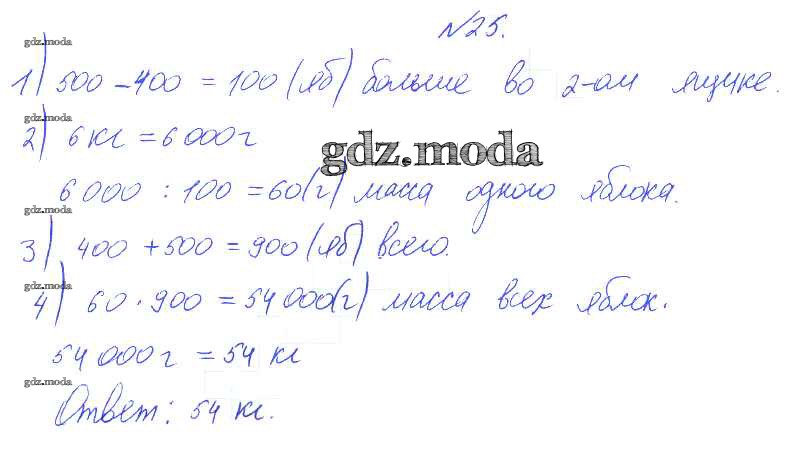 №25.
gdz.moda
1) 500 - 400 = 100 (яб) больше во 2-ом ящике.
gdz.moda
2) 6 кг = 6 000 г
gdz.moda
6 000 : 100 = 60 (г) масса одного яблока.
gdz.moda
3) 400 + 500 = 900 (яб) всего.
gdz.moda
4) 60 · 900 = 54 000 (г) масса всех яблок.
54 000 г = 54 кг
gdz.moda
Ответ: 54 кг.